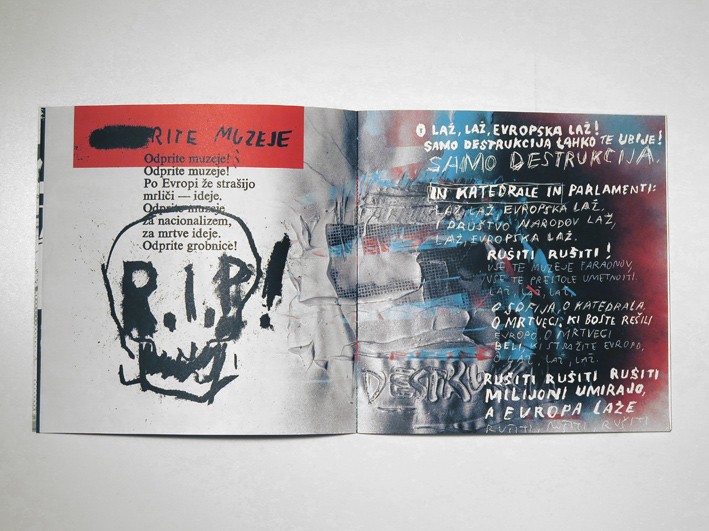 RITE MUZEJE
Odprite muzeje!
Odprite muzeje!
Po Evropi že strašijo
mrliči — ideje.
Odprite muzeje
za nacionalizem,
za mrtve ideje.
Odprite grobnice!
R.I.P!
O LAŽ, LAŽ, EVROPSKA LAŽ!
SAMO DESTRUKCIJA LAHKO TE UBIJE!
SAMO DESTRUKCIJA.
IN KATEDRALE IN PARLAMENTI:
LAŽ, LAŽ EVROPSKA LAŽ.
I DRUŠTVO NARODOV LAŽ,
LAŽ, EVROPSKA LAŽ.
RUŠITI RUŠITI!
VSE TE MUZEJE FARAONOV,
VSE TE PRESTOLE UMETNOSTI.
LAŽ, LAŽ, LAŽ.
O SOFIJA, O KATEDRALA.
O MRTVECI, KI BOSTE REŠILI
EVROPO, O MRTVECI
BELI, KI STRAŽITE EVROPO,
O LAŽ, LAŽ, LAŽ.
DESTRUK
RUŠITI RUŠITI RUŠITI
MILIJONI UMIRAJO,
A EVROPA LAŽE
RUŠITI. RUŠITI. RUŠITI